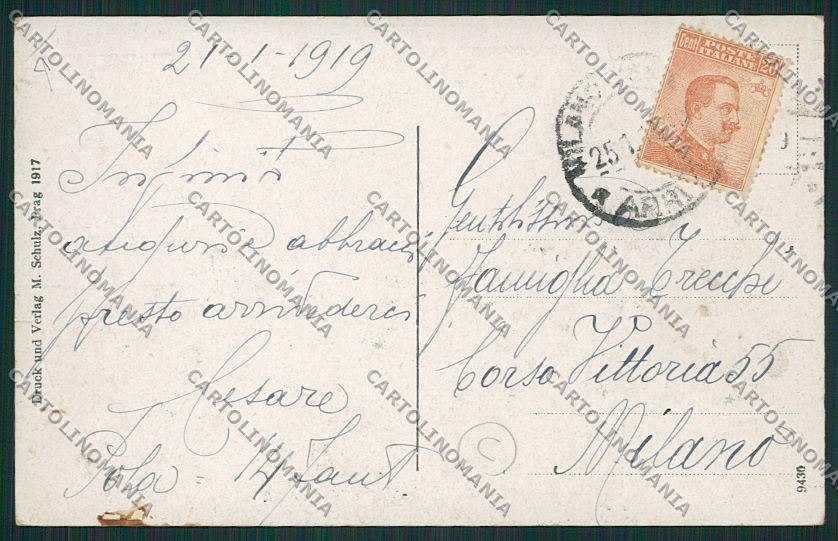 21-1-1919
Infiniti
auguri abbracci
presto arrivederci
Cesare
Pola = 14 Fant
Druck und Verlag M. Schulz, Prag 1917
Cent POSTE ITALIANE 20
MILANO
25 1
ARRI
Gentilissima
Famiglia Trecchi
Corso Vittoria 55
Milano
9430
C
CARTOLINOMANIA